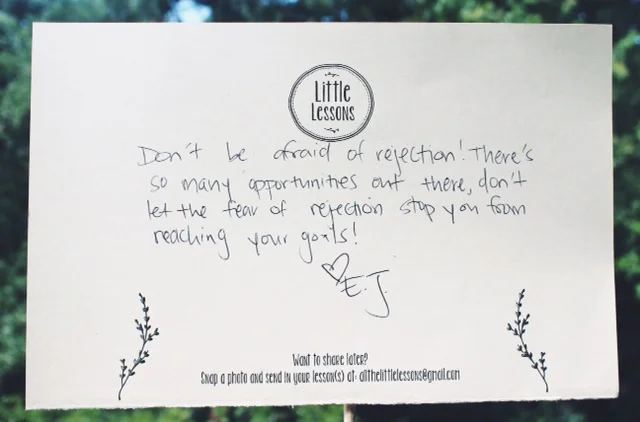 Little
Lessons
Don't be afraid of rejection! There's
so many opportunities out there, don't
let the fear of rejection stop you from
reaching your goals!
♡ E.J.
Want to share later?
Snap a photo and send in your lesson(s) at: allthelittlelessons@gmail.com